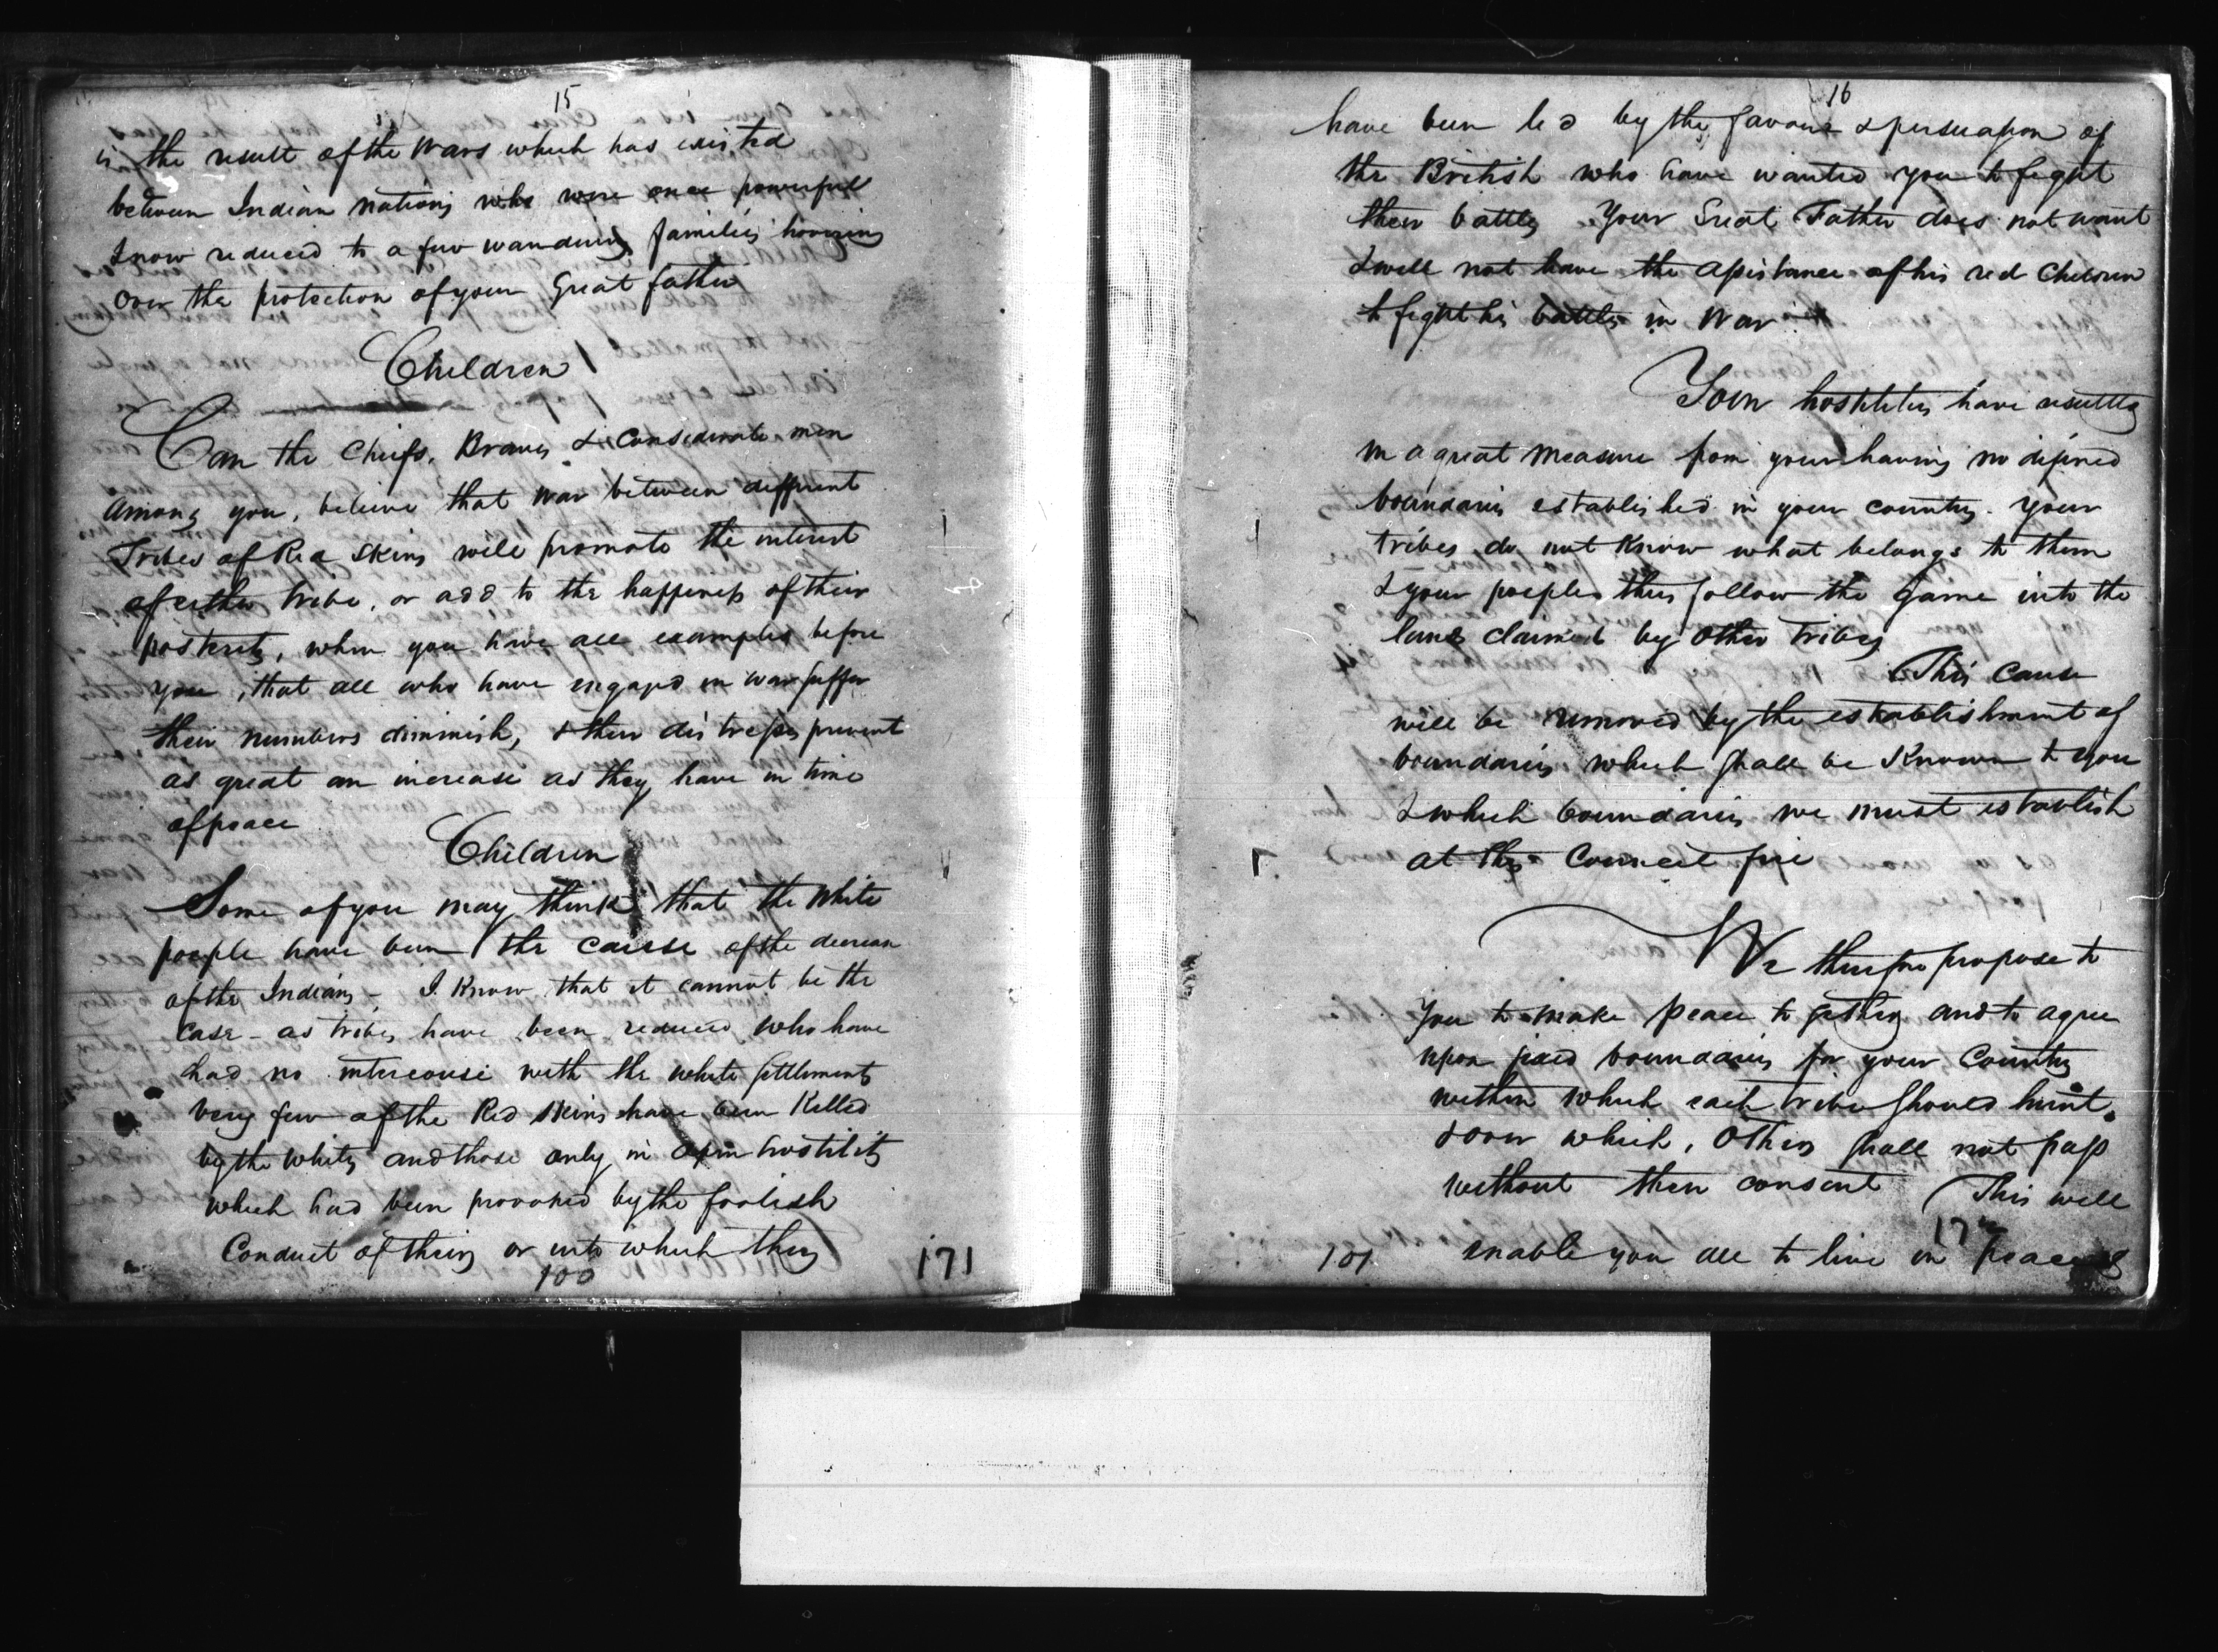 15
is the result of the Wars which has existed
between Indian nations who were once powerful
& now reduced to a few wandering families hovering
over the protection of your Great father
Children
Can the Chiefs, Braves & Considerate men
Among you, believe that war between different
Tribes of Red Skins will promote the interest
of either tribe, or add to the happiness of their
posterity, when you have all examples before
you, that all who have engaged in war suffer
their numbers diminish, & their distresses prevent
as great an increase as they have in time
of peace
Children
Some of you may think that the White
people have been the cause of the decrease
of the Indians - I Know that it cannot be the
case - as tribes have been reduced who have
had no intercouse with the white settlements
very few of the Red Skins have been Killed
by the Whites and those only in open hostility
which had been provoked by the foolish
Conduct of theirs or into which they
100
171
16
have been led by the favours & persuasion of
the British who have wanted you to fight
their battles Your Great Father does not want
& will not have the assistance of his red Children
to fight his battles in War
Your hostilities have resulted
in a great measure from your having no defined
boundaries established in your country. Your
tribes do not Know what belongs to them
& your people thus follow the Game into the
lands claimed by other tribes
This Cause
will be removed by the establishment of
boundaries which shall be Known to you
& which boundaries we must establish
at this Council fire
We therefore propose to
You to make peace together and to agree
upon fixed boundaries for your Country
within which each tribe should hunt
& over which, Others shall not pass
without their consent This will
172
101
enable you all to live in peace &